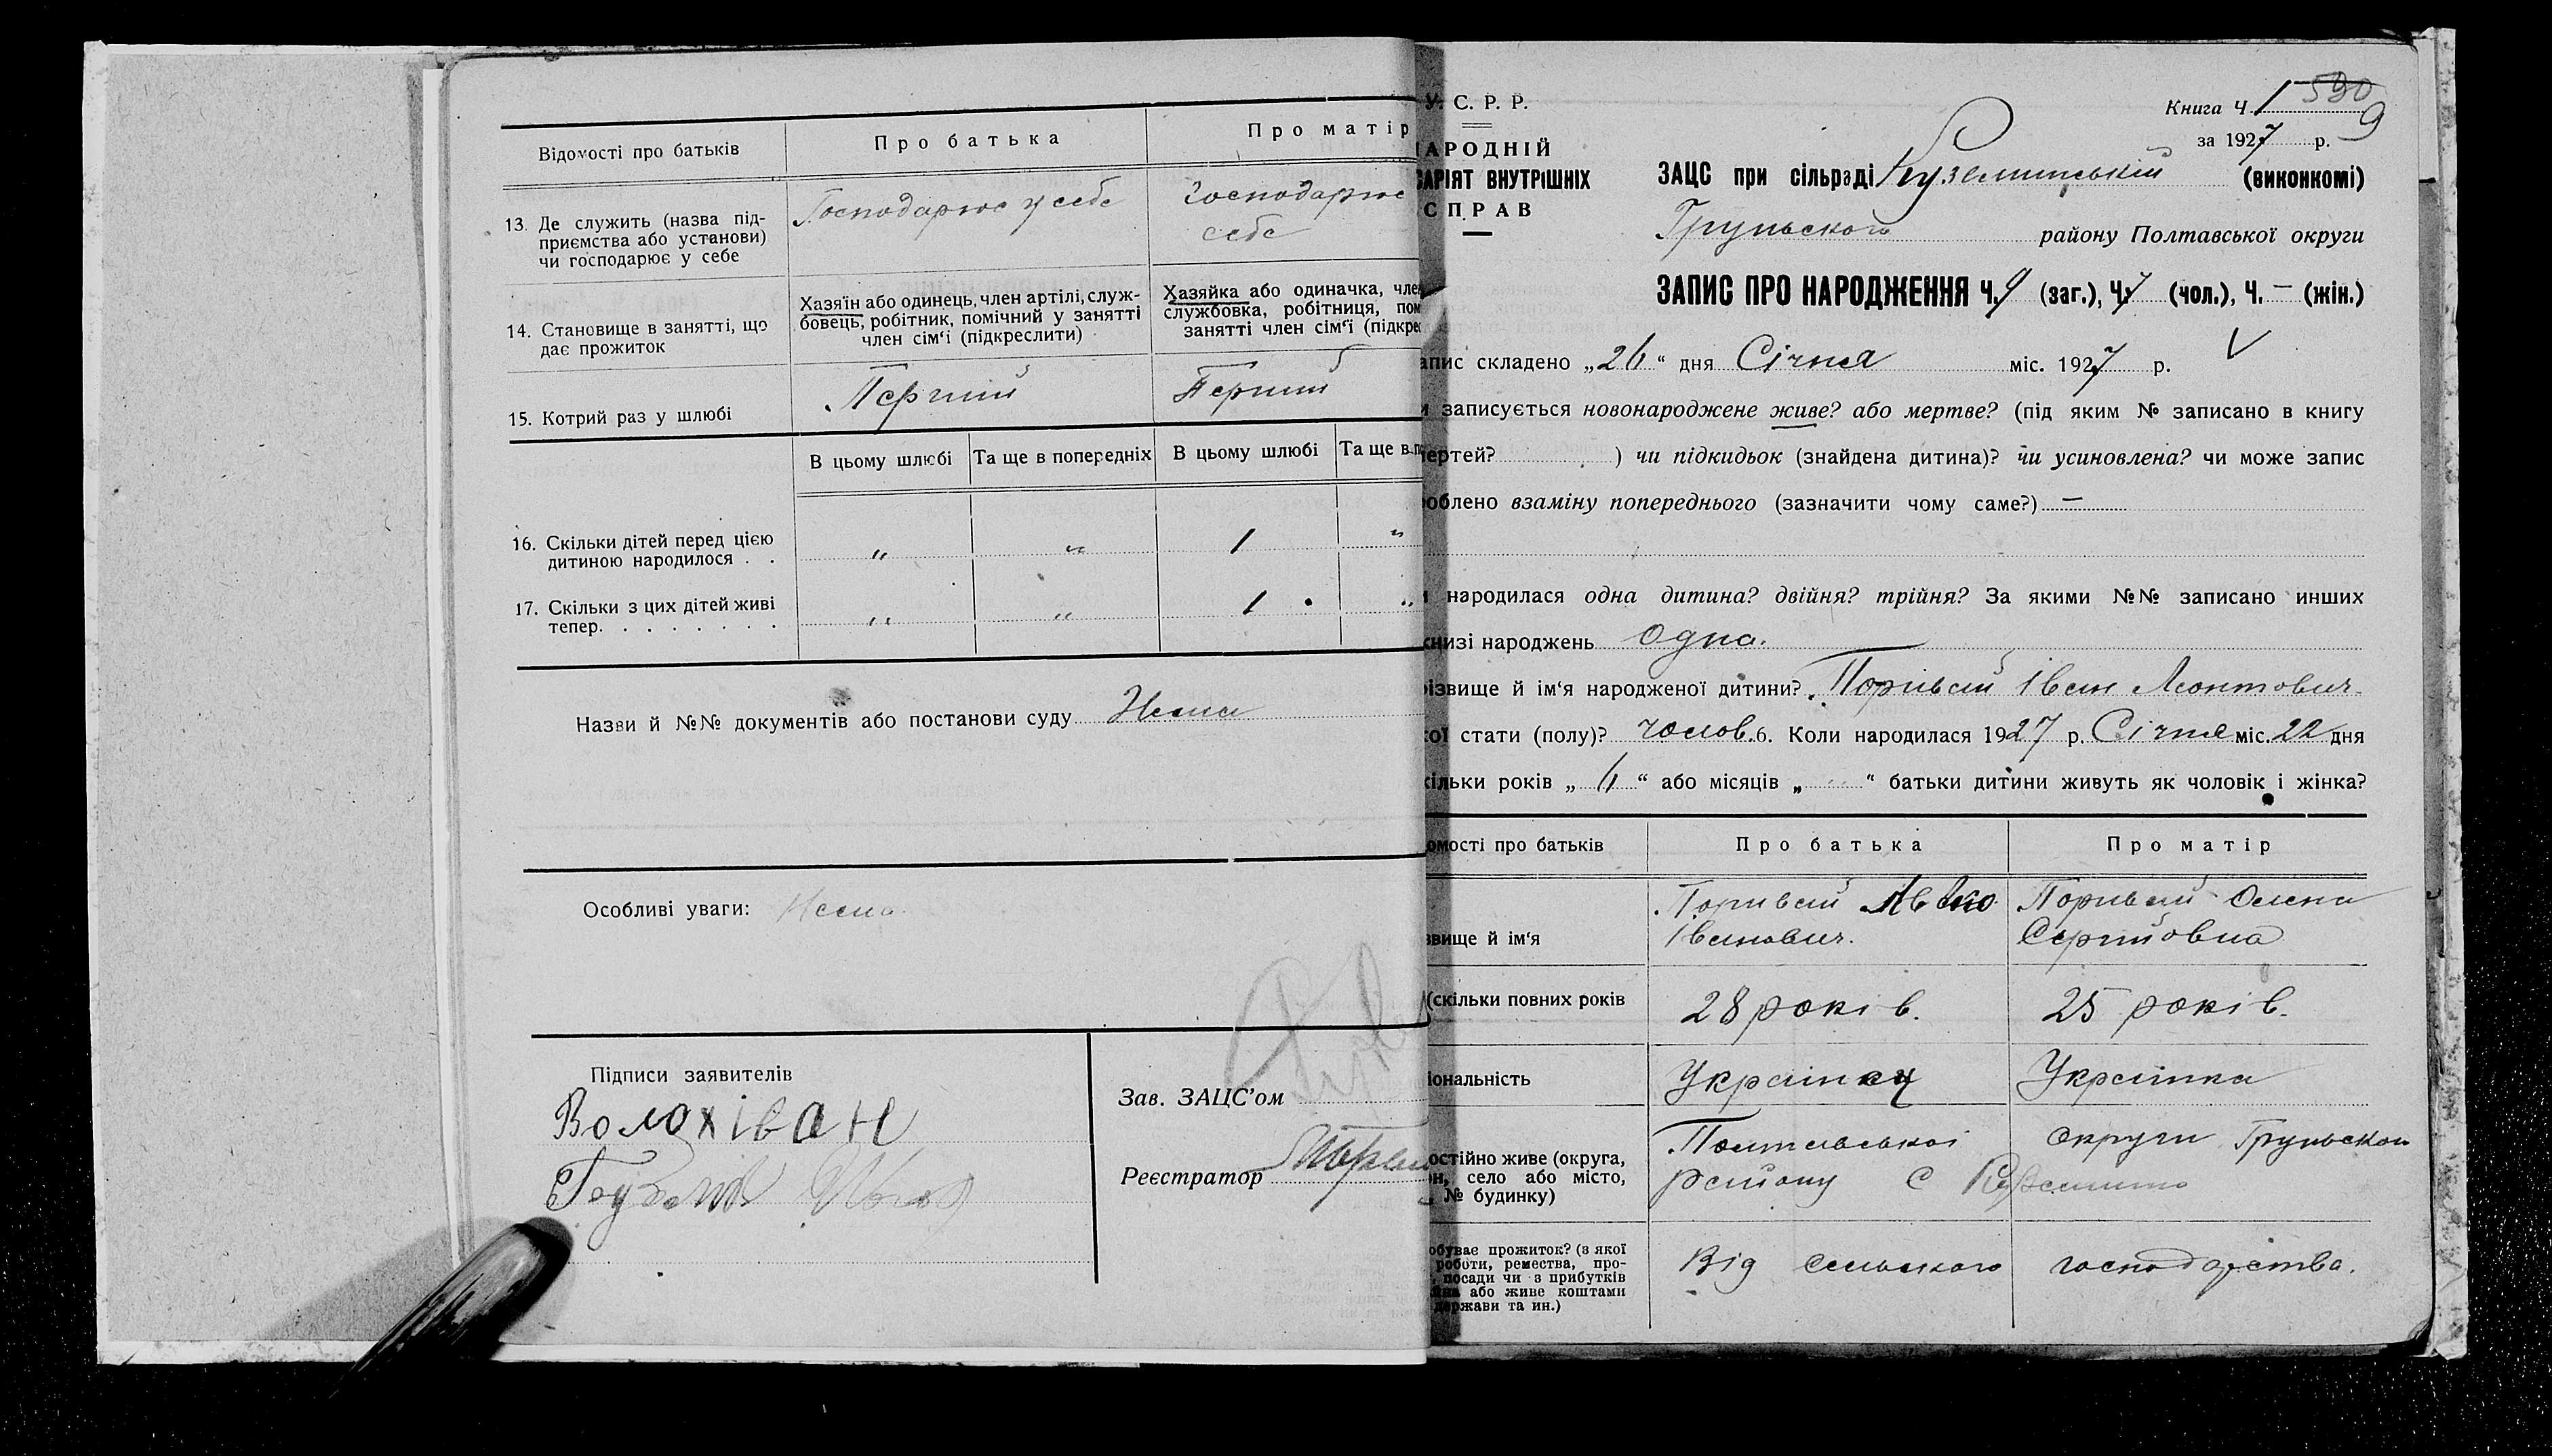 Відомості про батьків
Про батька
Про матір
13. Де служить (назва під-
приємства або установи)
чи господарює у себе
Господарює у себе
Господарює
себе
14. Становище в занятті, що
дає прожиток
Хазяїн або одинець, член артілі, служ-
бовець, робітник, помічний у занятті
член сім‘ї (підкреслити)
Хазяйка або одиначка, чле
службовка, робітниця, пом
занятті член сім‘ї (підкрес
15. Котрий раз у шлюбі
Перший
Перший
В цьому шлюбі
Та ще в попередніх
В цьому шлюбі
Та ще в п
16. Скільки дітей перед цією
дитиною народилося . .
„ „ 1 „
17. Скільки з цих дітей живі
тепер. . . . . . . .
„ „ 1 „
Назви й №№ документів або постанови суду Нема
Особливі уваги: Нема
Підписи заявителів
Волох іван
Зав. ЗАЦС’ом
Реєстратор
У. С. Р. Р.
АРОДНІЙ
АРІЯТ ВНУТРІШНІХ
СПРАВ
Книга Ч. 1 530
9
за 1927 р.
ЗАЦС при сільраді Куземинській (виконкомі)
Груньского району Полтавської округи
ЗАПИС ПРО НАРОДЖЕННЯ Ч. 9 (заг.), Ч. 7 (чол.), Ч. — (жін.)
апис складено „26“ дня Січня міс. 1927 р. V
и записується новонароджене живе? або мертве? (під яким № записано в книгу
мертей? ) чи підкидьок (знайдена дитина)? чи усиновлена? чи може запис
облено взаміну попереднього (зазначити чому саме?) —
народилася одна дитина? двійня? трійня? За якими №№ записано инших
книзі народжень Одна.
ізвище й ім‘я народженої дитини? Поривай Іван Леонтович
ої стати (полу)? чолов. 6. Коли народилася 1927 р. Січня міс. 22 дня
ільки років „ 6 “ або місяців „ “ батьки дитини живуть як чоловік і жінка?
омості про батьків
Про батька
Про матір
звище й ім‘я
Поривай
Іванович.
Поривай Олена
Сергійовна
(скільки повних років
28 років.
25 років.
іональність
Українец
Українка
остійно живе (округа,
н, село або місто,
№ будинку)
Полтавської округи Груньского
району с Куземино
обуває прожиток? (з якої
роботи, ремества, про-
посади чи з прибутків
або живе коштами
держави та ин.)
Від сельского господарства.